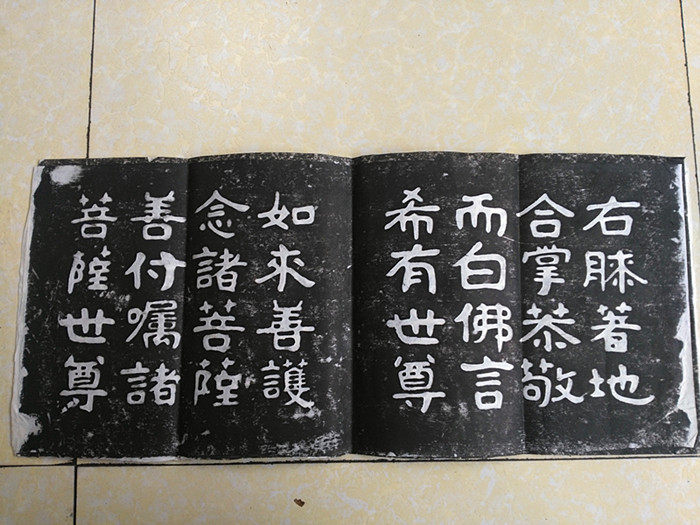 右膝著地
合掌恭敬
而白佛言
希有世尊
如來善護
念諸菩薩
善付嘱諸
菩薩世尊